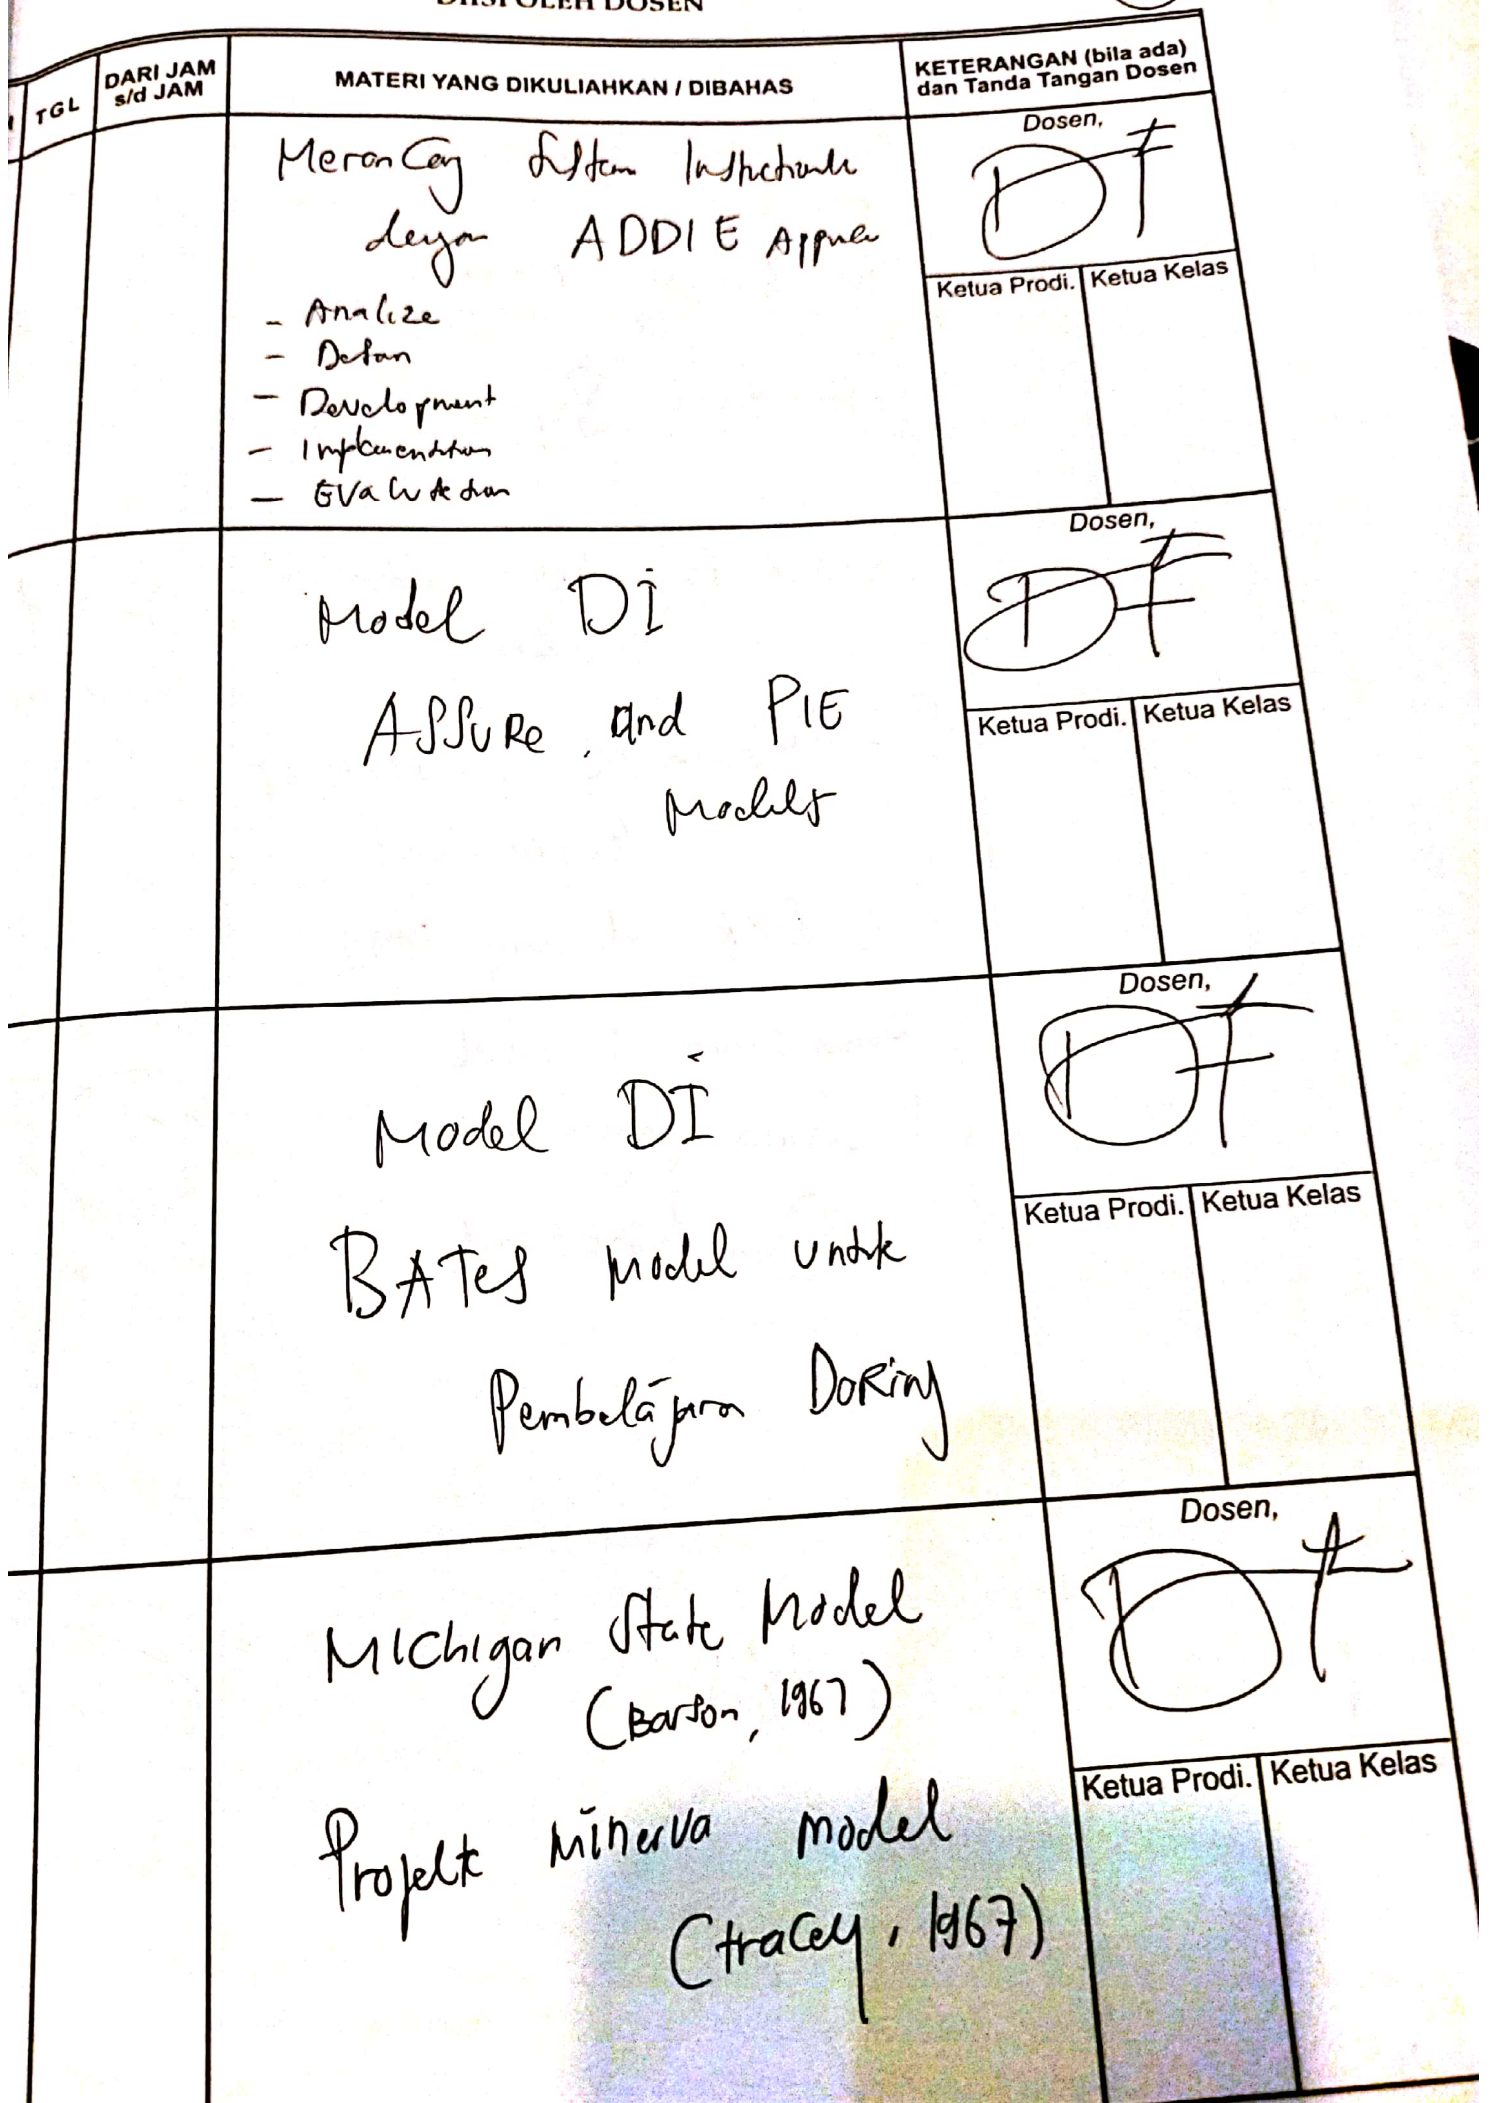 DIISI OLEH DOSEN
TGL
DARI JAM
s/d JAM
MATERI YANG DIKULIAHKAN / DIBAHAS
KETERANGAN (bila ada)
dan Tanda Tangan Dosen
Merancang Sistem Instructional
dengan ADDIE
- Analize
- Desain
- Development
- Implementation
- Evaluation
Dosen,
Ketua Prodi. Ketua Kelas
Model DI
ASSURE, and PIE
Models
Dosen,
Ketua Prodi. Ketua Kelas
Model DI
BATES Model untuk
Pembelajaran Daring
Dosen,
Ketua Prodi. Ketua Kelas
Michigan State Model
(Barson, 1967)
Projekt Minerva Model
(Tracey, 1967)
Dosen,
Ketua Prodi. Ketua Kelas